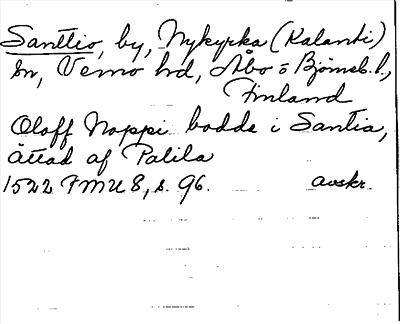 Santtio, by, Nykyrka (Kalanti)
sn, Vemo hd, Åbo o Björneb. l.,
Finland
Oloff Noppi bodde i Santia,
ättad af Palila
1522 FMU 8, s. 96. avskr.